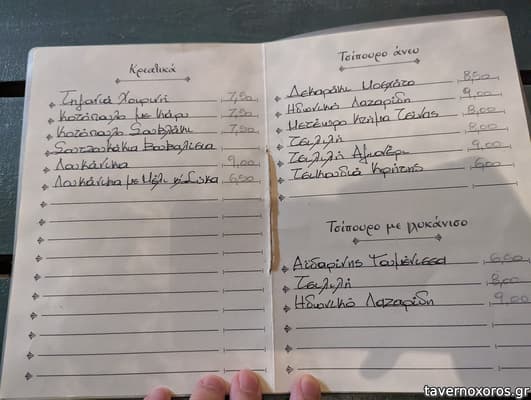 Κρεατικά
Τηγανιά Χοιρινή 7,50
Κοτόπουλο με κάρυ 7,50
Κοτόπουλο Σουβλάκι 7,50
Σουτζουκάκια Βουβαλίσια
Λουκάνικα 9,00
Λουκάνικα με Μέλι κ Σύκα 6,50
Τσίπουρο άνευ
Δεκαράκι Μοσχάτο 8,50
Ηδωνικό Λαζαρίδη 9,00
Μετέωρο Κτήμα Τσάνης 8,00
Τσιλιλή 8,00
Τσιλιλή 9,00
Τσικουδιά Κρήτης 6,00
Τσίπουρο με γλυκάνισο
Αϊδαρίνης 6,50
Τσιλιλή 8,00
Ηδωνικό Λαζαρίδη 9,00
tavernoxoros.gr